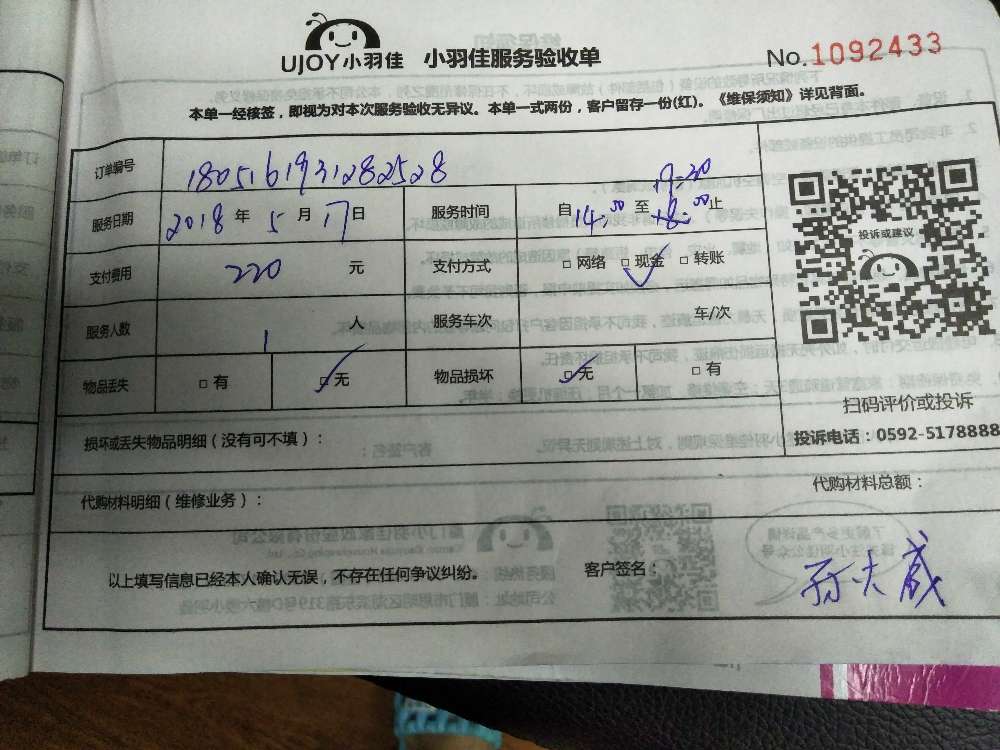 UJOY小羽佳 小羽佳服务验收单 No.1092433
本单一经核签，即视为对本次服务验收无异议。本单一式两份，客户留存一份(红)。《维保须知》详见背面。
订单编号 1805161931282528
服务日期 2018 年 5 月 17 日 服务时间 自 14:00 至 18:00 止 19:30
支付费用 220 元 支付方式 □ 网络 □ 现金 ✓ □ 转账
服务人数 1 人 服务车次 车/次
物品丢失 □ 有 □ 无 ✓ 物品损坏 □ 无 ✓ □ 有
投诉或建议
扫码评价或投诉
投诉电话：0592-5178888
损坏或丢失物品明细（没有可不填）：
代购材料明细（维修业务）： 代购材料总额：
以上填写信息已经本人确认无误，不存在任何争议纠纷。 客户签名：